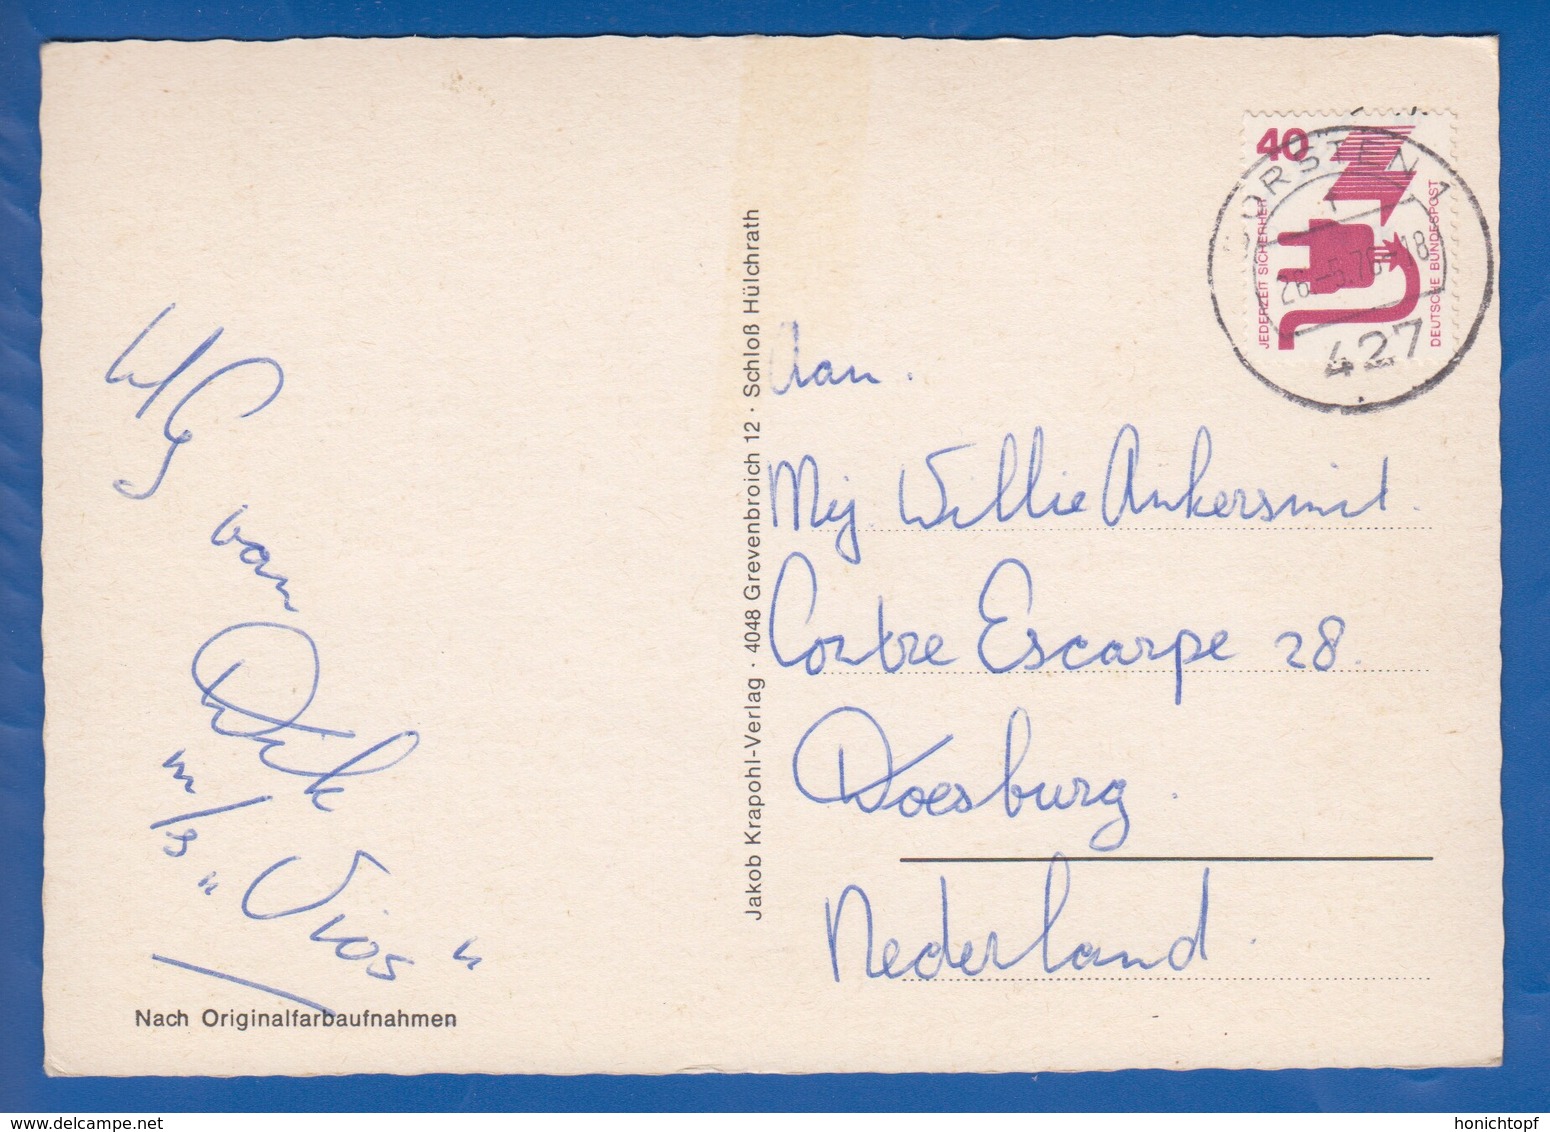 HG
van
Dick
m/s "Vios"
Nach Originalfarbaufnahmen
Jakob Krapohl-Verlag · 4048 Grevenbroich 12 · Schloß Hülchrath
40
JEDERZEIT SICHERHEIT
DEUTSCHE BUNDESPOST
DORSTEN 1
26.-5.76-18
427
Aan.
Mej. Willie Ankersmit.
Contre Escarpe 28.
Doesburg.
Nederland.
honichtopf